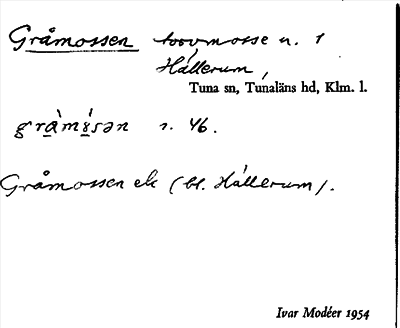 Gråmossen torvmosse n. 1
Hállerum,
Tuna sn, Tunaläns hd, Klm. l.
grа̀mɣ́sən r. 46.
Gråmossen ek (bl. Hállerum).
Ivar Modéer 1954